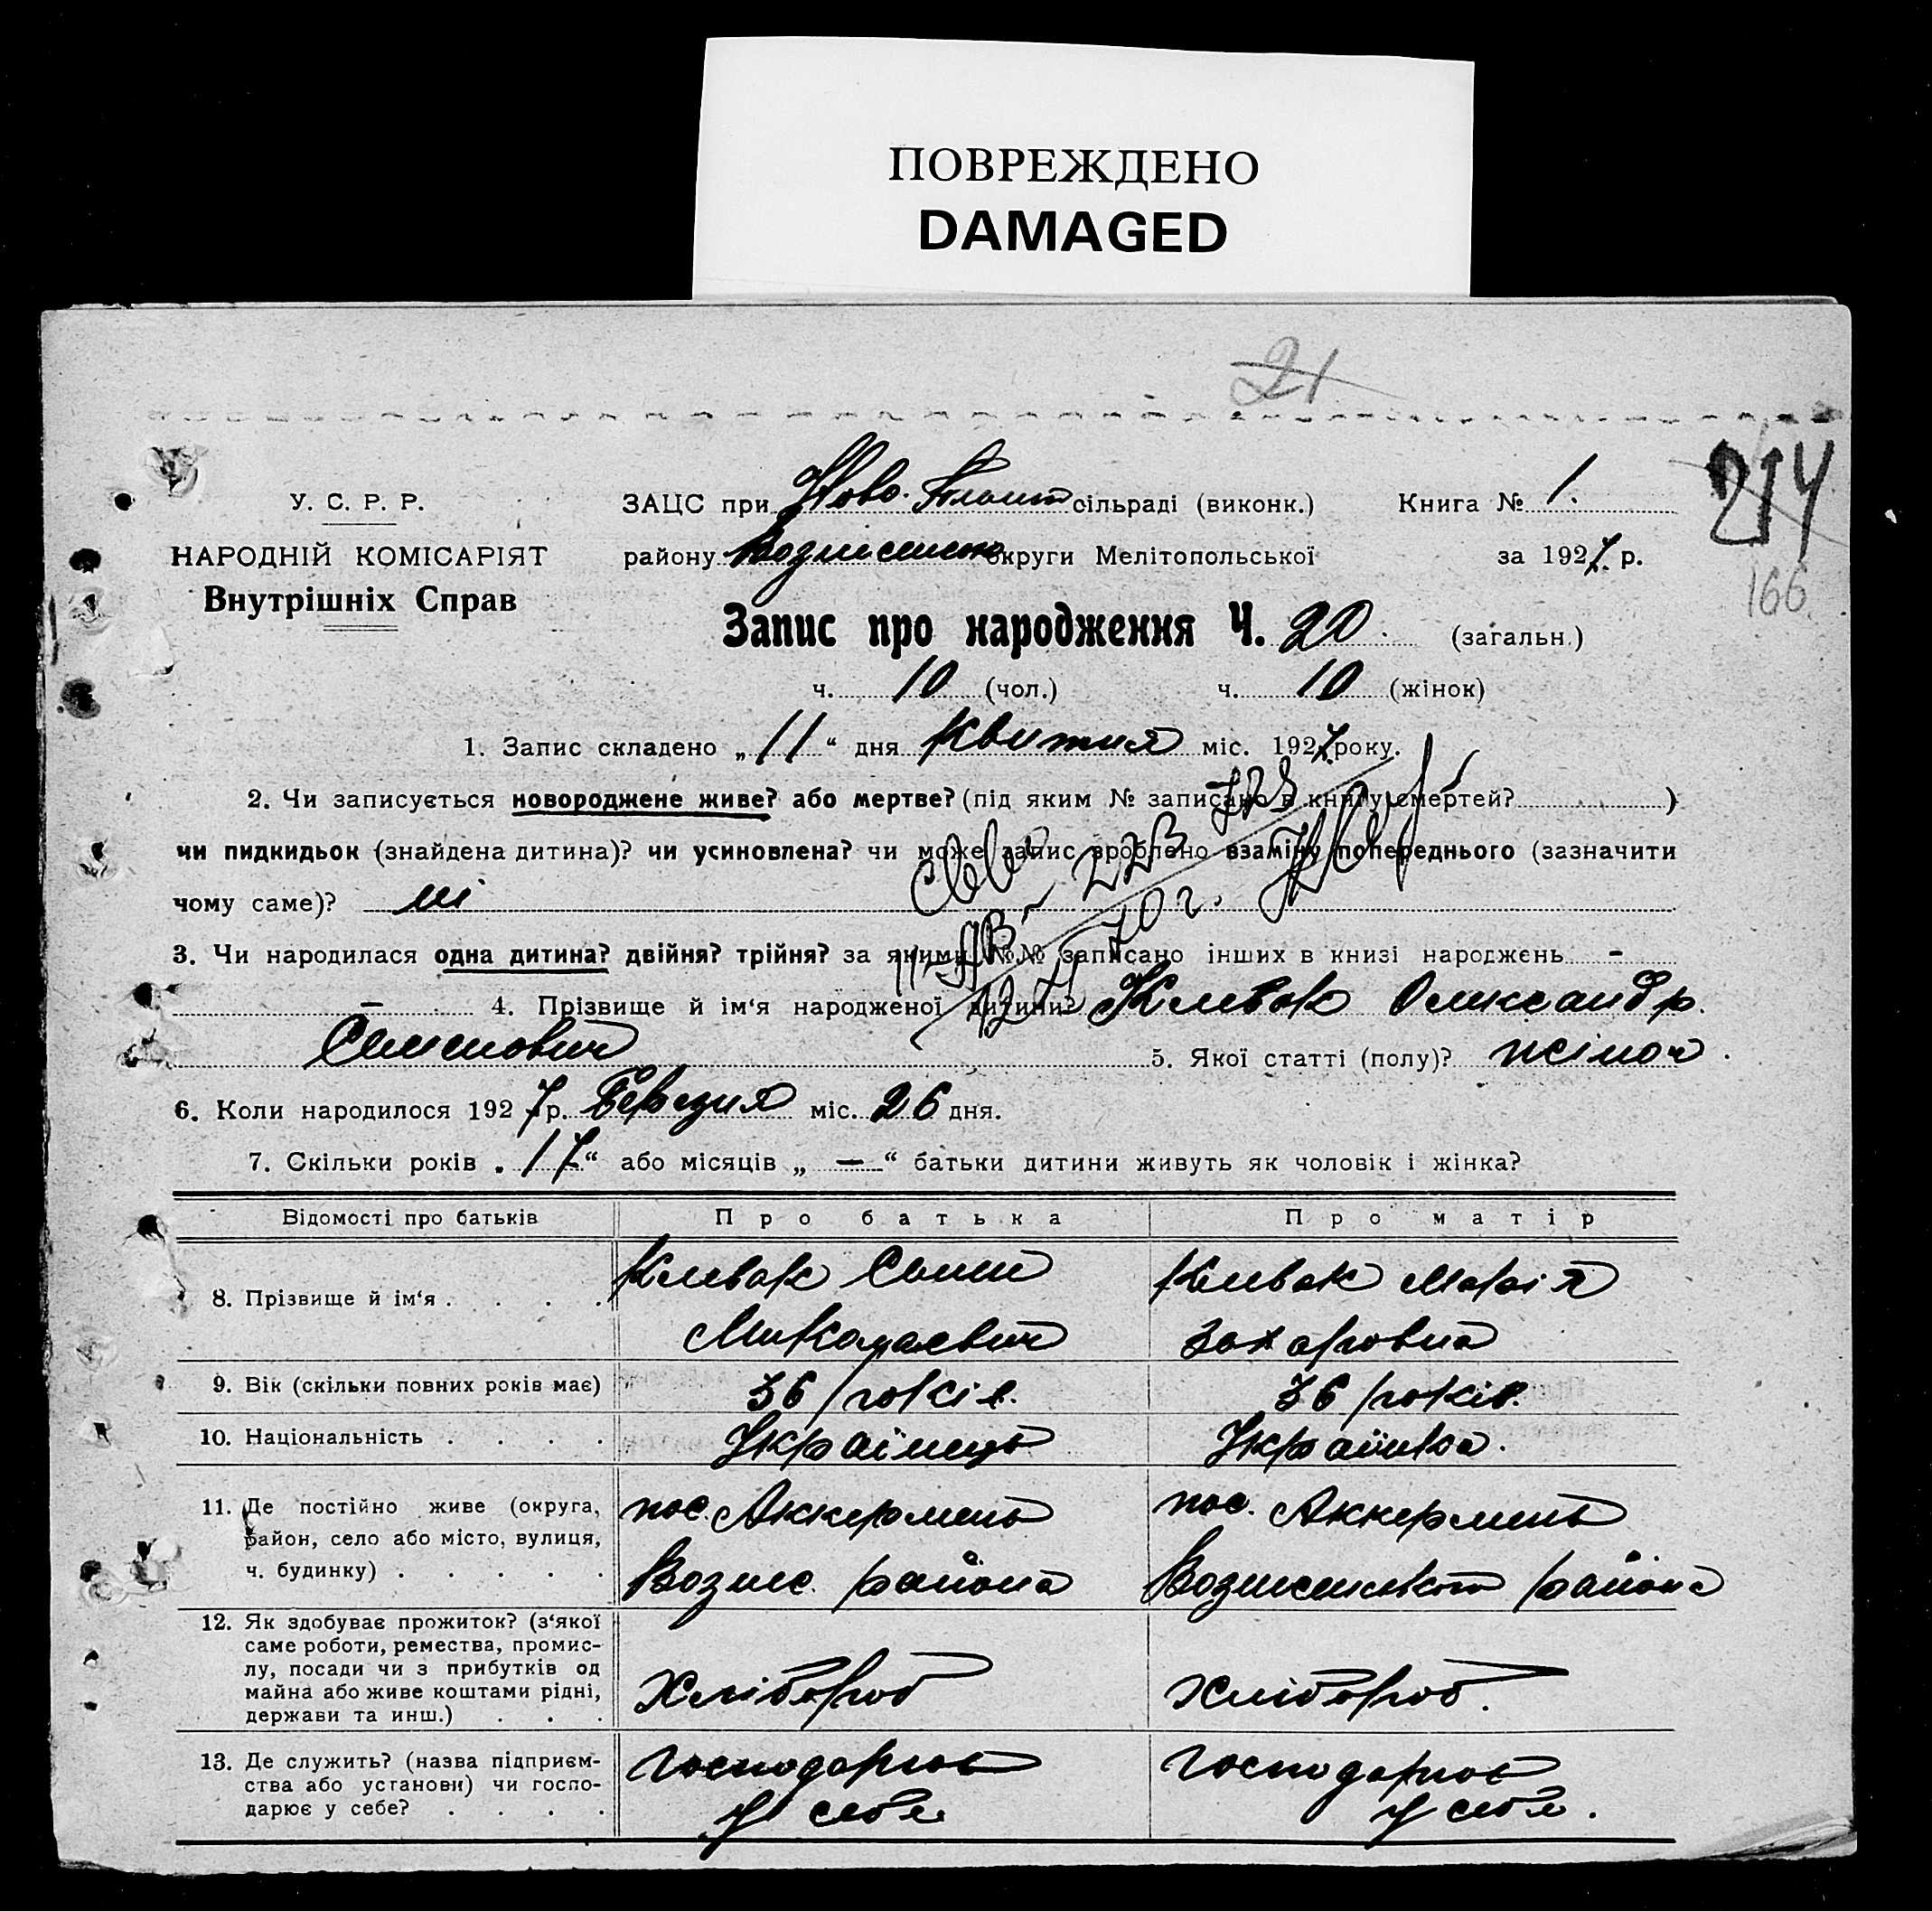 ПОВРЕЖДЕНО
DAMAGED
21
214
166
У. С. Р. Р.
НАРОДНІЙ КОМІСАРІЯТ
Внутрішніх Справ
ЗАЦС при Ново. сільраді (виконк.) Книга № 1.
району округи Мелітопольської за 1927 р.
Запис про народження Ч. 20. (загальн.)
ч. 10 (чол.) ч. 10 (жінок)
1. Запис складено „11“ дня Квітня міс. 1927 року.
2. Чи записується новороджене живе? або мертве? (під яким № записано в книгу смертей? )
чи пидкидьок (знайдена дитина)? чи усиновлена? чи може запис зроблено взаміну попереднього (зазначити
чому саме)? ні
3. Чи народилася одна дитина? двійня? трійня? за якими №№ записано інших в книзі народжень -
- 4. Прізвище й ім‘я народженої дитини? Клевак Олександр.
Семенович 5. Якої статті (полу)? жіноч.
6. Коли народилося 1927 р. Березня міс. 26 дня.
7. Скільки років „17“ або місяців „—“ батьки дитини живуть як чоловік і жінка?
Відомості про батьків Про батька Про матір
8. Прізвище й ім‘я . . . . Клевак Семен Клевак Марія
Миколаевич Захаровна
9. Вік (скільки повних років має) 36 років. 36 років.
10. Національність . . . . Українець Українка.
11. Де постійно живе (округа, пос. Аккермень пос. Аккермень
район, село або місто, вулиця,
ч. будинку) . . . . . Вознес. района района
12. Як здобуває прожиток? (з‘якої
саме роботи, ремества, промис-
лу, посади чи з прибутків од
майна або живе коштами рідні, Хлібороб Хлібороб.
держави та инш.) . . .
13. Де служить? (назва підприєм- Господарює Господарює
ства або установи) чи госпо-
дарює у себе? . . . . у себе у себе.